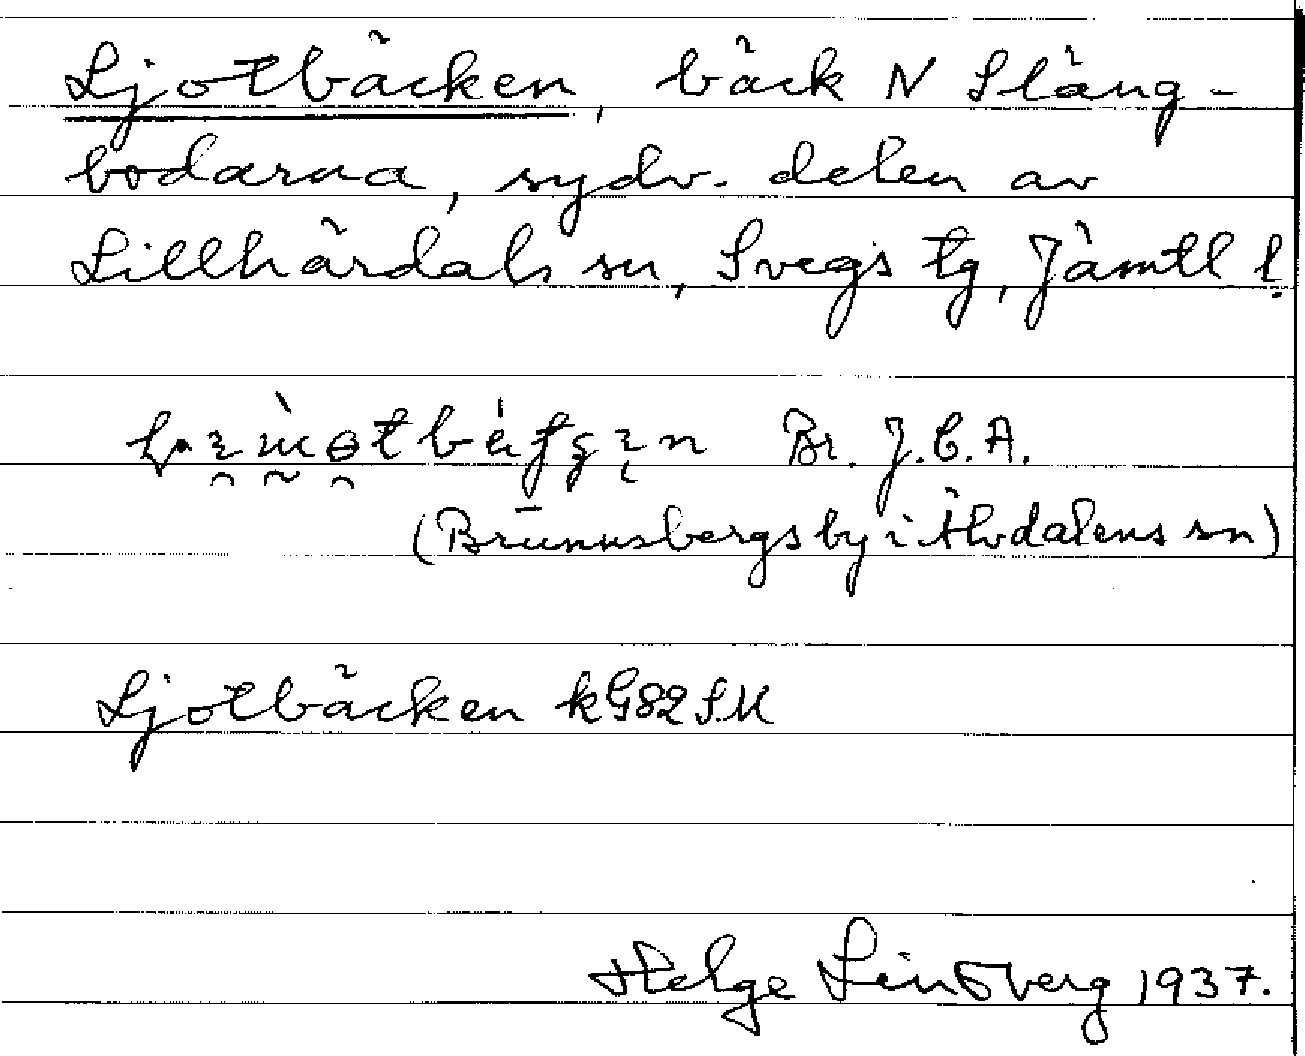 Ljotbäcken, bäck N Släng-
bodarna, sydv. delen av
Lillhärdals sn, Svegs tg, Jämtl l.
Br. J.C.A.
(Brunnsbergs by i Älvdalens sn)
Ljotbäcken kG82SM
Helge Lindberg 1937.